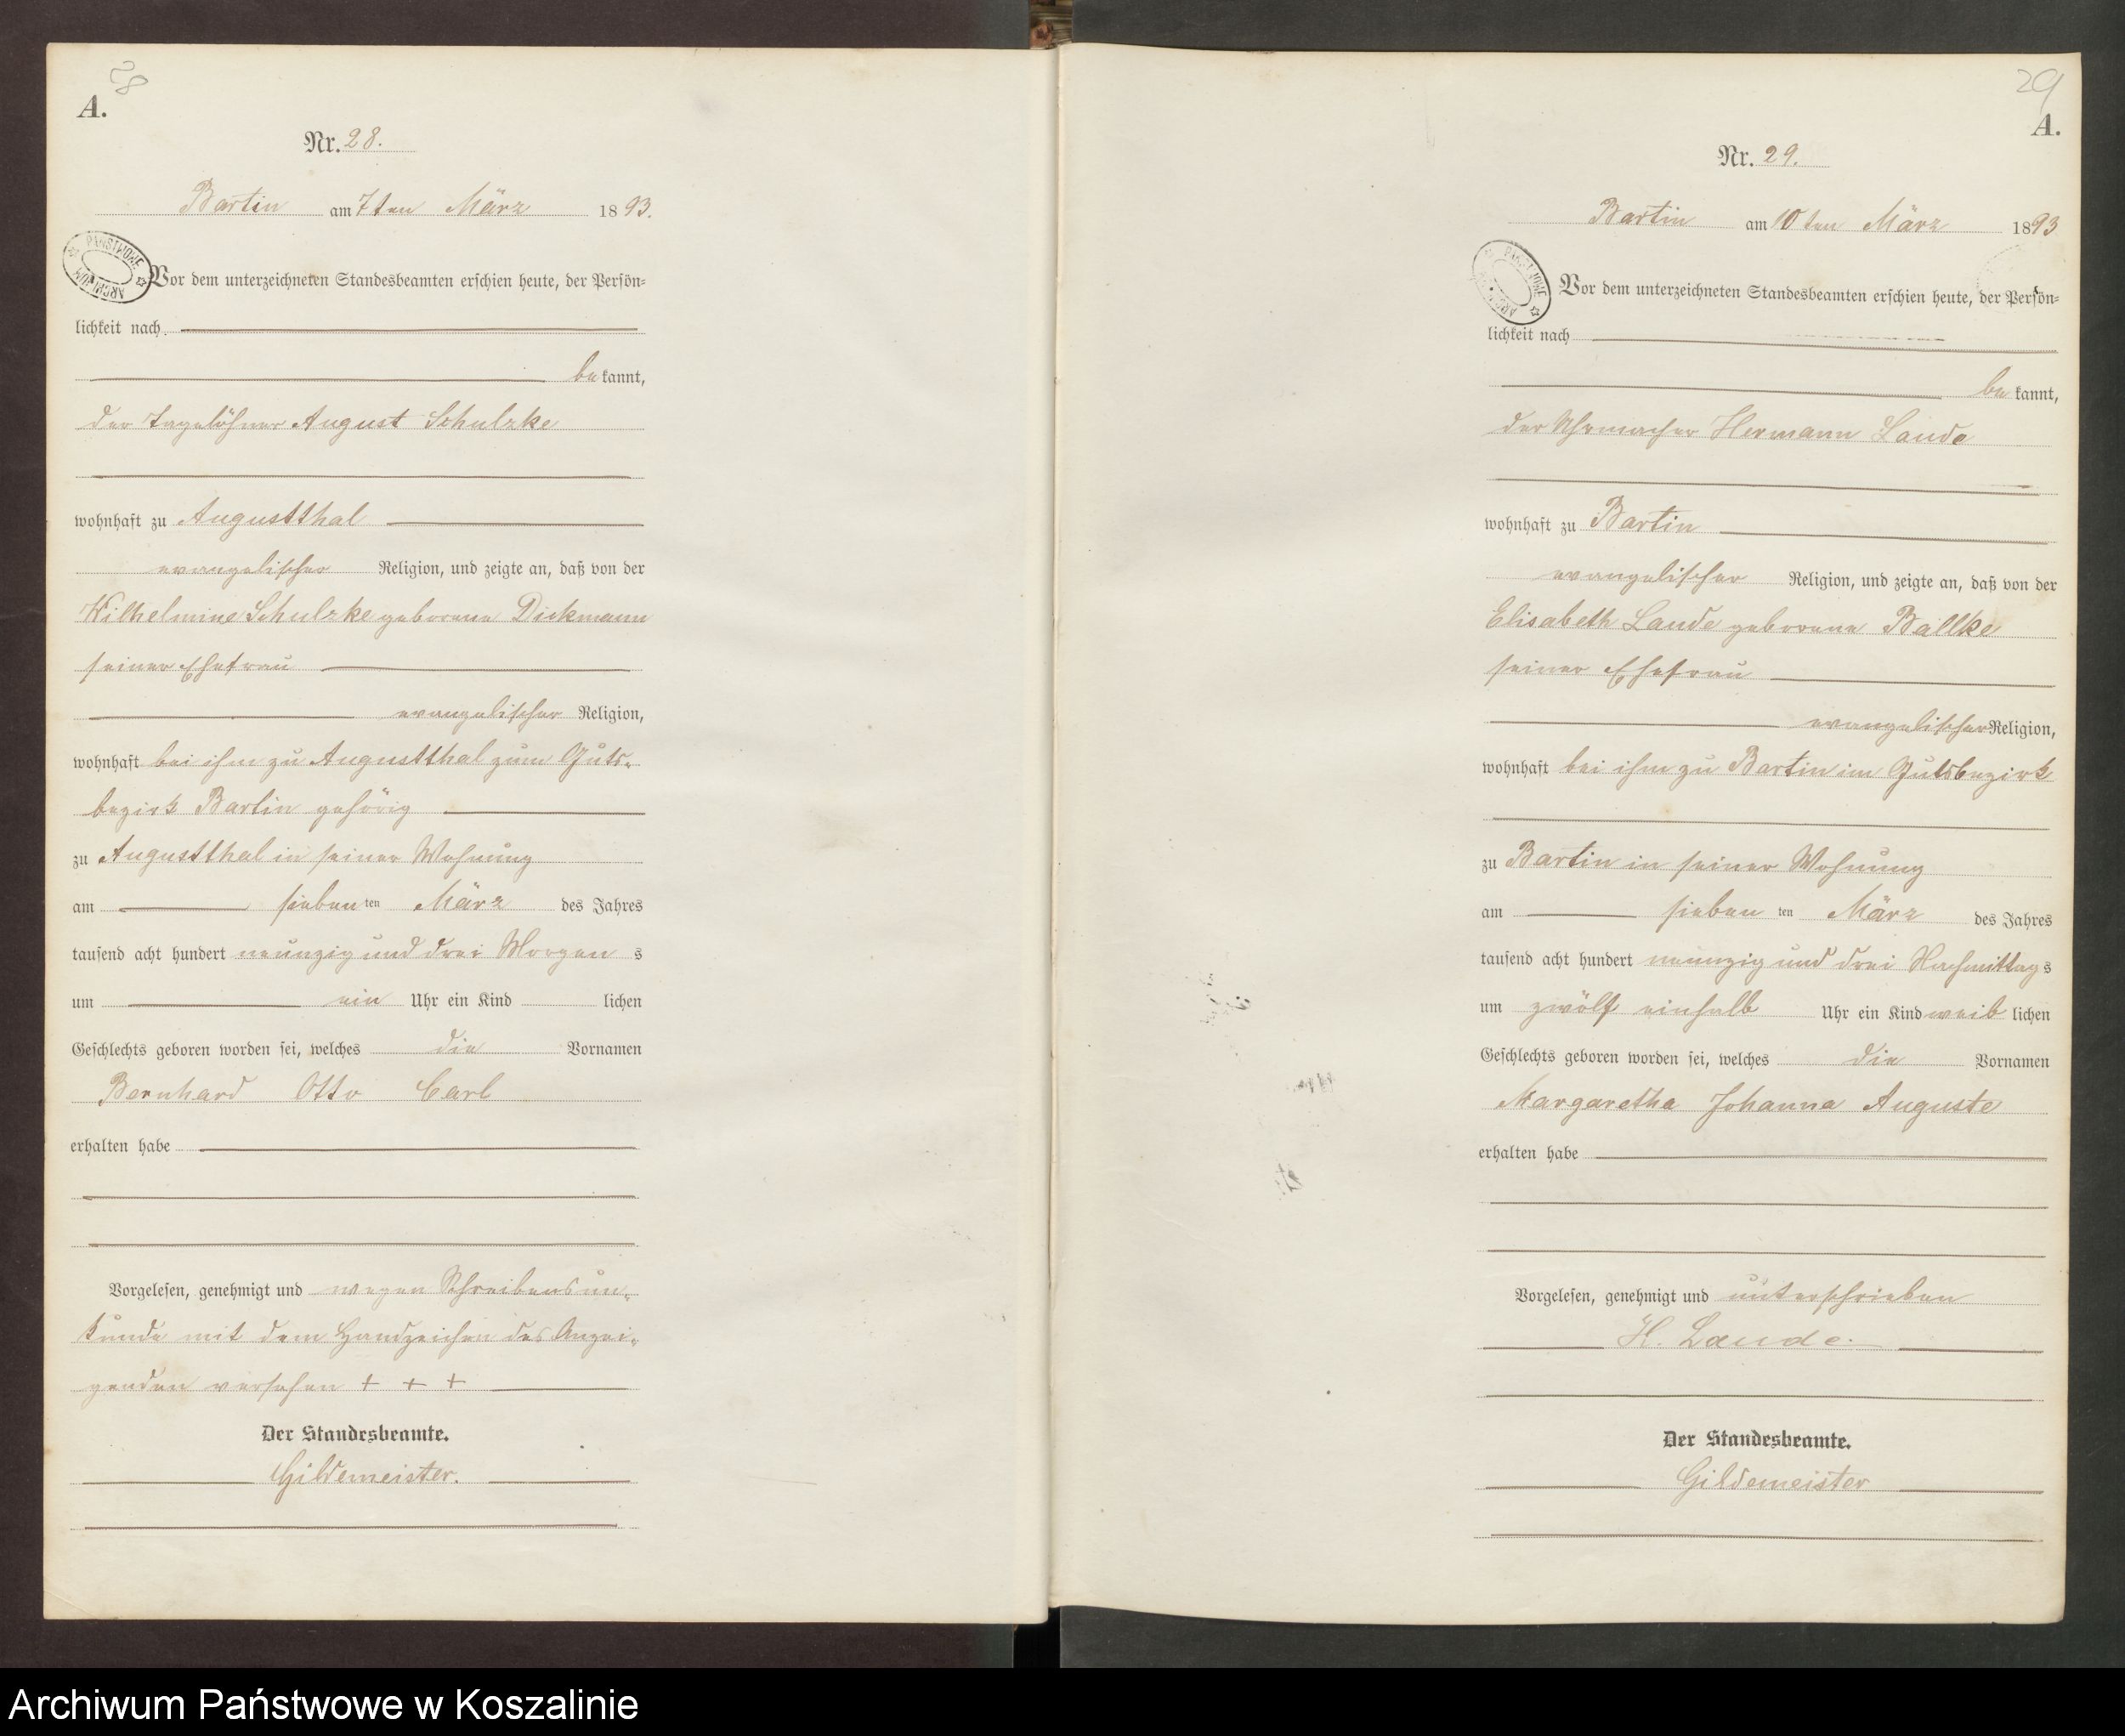 28
A.
Nr. 28.
Bartin am 7ten März 1893.
PAŃSTWOWE ARCHIWUM
Vor dem unterzeichneten Standesbeamten erschien heute, der Persön=
lichkeit nach
bekannt,
der Tagelöhner August Schulzke
wohnhaft zu Augustthal
evangelischer Religion, und zeigte an, daß von der
Wilhelmine Schulzke geborene Dickmann
seiner Ehefrau
evangelischer Religion,
wohnhaft bei ihm zu Augustthal zum Guts-
bezirk Bartin gehörig
zu Augustthal in seiner Wohnung
am siebenten März des Jahres
tausend acht hundert neunzig und drei Morgens
um ein Uhr ein Kind lichen
Geschlechts geboren worden sei, welches die Vornamen
Bernhard Otto Carl
erhalten habe
Vorgelesen, genehmigt und wegen Schreibensun-
kunde mit dem Handzeichen des Anzei-
genden versehen + + +
Der Standesbeamte.
Gildemeister.
29
A.
Nr. 29.
Bartin am 10ten März 1893
PAŃSTWOWE ARCHIWUM
Vor dem unterzeichneten Standesbeamten erschien heute, der Persön=
lichkeit nach
bekannt,
der Uhrmacher Hermann Laude
wohnhaft zu Bartin
evangelischer Religion, und zeigte an, daß von der
Elisabeth Laude geborene Ballke
seiner Ehefrau
evangelischer Religion,
wohnhaft bei ihm zu Bartin im Gutsbezirk
zu Bartin in seiner Wohnung
am siebenten März des Jahres
tausend acht hundert neunzig und drei Nachmittags
um zwölf einhalb Uhr ein Kind weiblichen
Geschlechts geboren worden sei, welches die Vornamen
Margaretha Johanna Auguste
erhalten habe
Vorgelesen, genehmigt und unterschrieben
H. Laude.
Der Standesbeamte.
Gildemeister
Archiwum Państwowe w Koszalinie